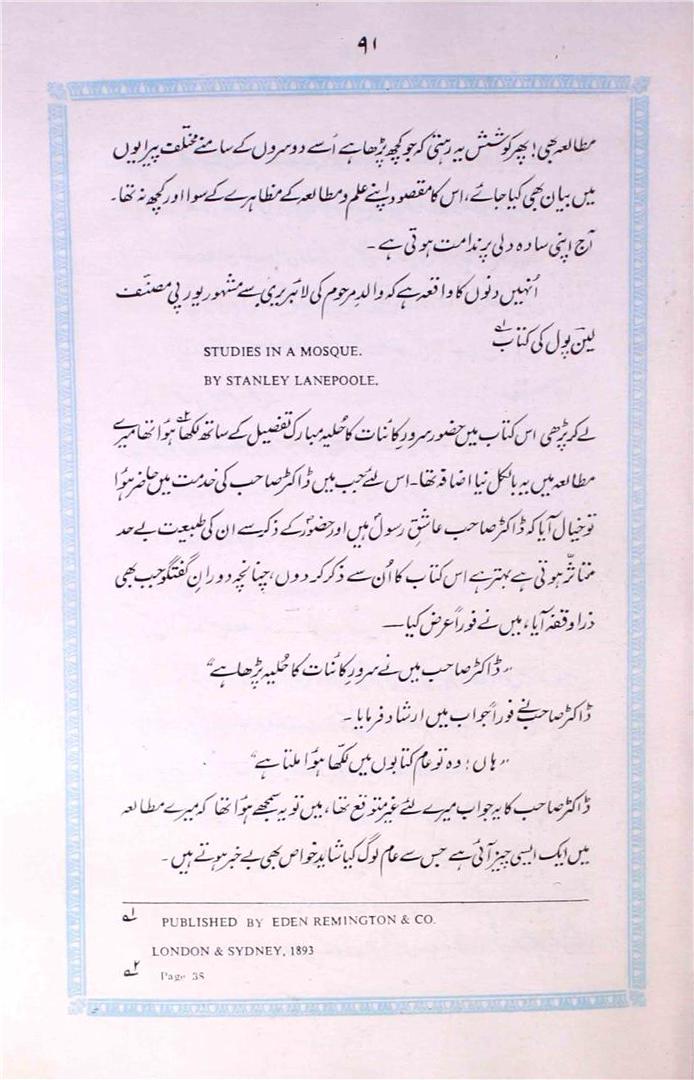 ۹۱
مطالعہ بھی! پھر کوشش یہ رہتی کہ جو کچھ پڑھا ہے اُسے دوسروں کے سامنے مختلف پیرایوں
میں بیان بھی کیا جائے، اس کا مقصود اپنے علم و مطالعہ کے مظاہرے کے سوا اور کچھ نہ تھا۔
آج اپنی سادہ دلی پر ندامت ہوتی ہے۔
اُنہیں دنوں کا واقعہ ہے کہ والدِ مرحوم کی لائبریری سے مشہور یورپی مصنّف
لین پول کی کتاب ۱؎
STUDIES IN A MOSQUE.
BY STANLEY LANEPOOLE.
لے کر پڑھی اس کتاب میں حضور سرورِ کائنات کا حُلیہ مبارک تفصیل کے ساتھ لکھا ۲؎ ہوُا تھا میرے
مطالعہ میں یہ بالکل نیا اضافہ تھا۔ اس لئے جب میں ڈاکٹر صاحب کی خدمت میں حاضر ہوُا
تو خیال آیا کہ ڈاکٹر صاحب عاشقِ رسولؐ ہیں اور حضورؐ کے ذکر سے ان کی طبیعت بے حد
متاثّر ہوتی ہے بہتر ہے اس کتاب کا اُن سے ذکر کر دوں، چنانچہ دورانِ گفتگو جب بھی
ذرا وقفہ آیا، میں نے فوراً عرض کیا—
"ڈاکٹر صاحب میں نے سرورِ کائنات کا حُلیہ پڑھا ہے"
ڈاکٹر صاحب نے فوراً جواب میں ارشاد فرمایا۔
"ہاں! وہ تو عام کتابوں میں لکھّا ہوُا ملتا ہے"
ڈاکٹر صاحب کا یہ جواب میرے لئے غیر متوقع تھا، میں تو یہ سمجھے ہوُا تھا کہ میرے مطالعہ
میں ایک ایسی چیز آئی ہے جس سے عام لوگ کیا شاید خواص بھی بے خبر ہوتے ہیں۔
۱؎ PUBLISHED BY EDEN REMINGTON & CO.
LONDON & SYDNEY, 1893
۲؎ Page 38